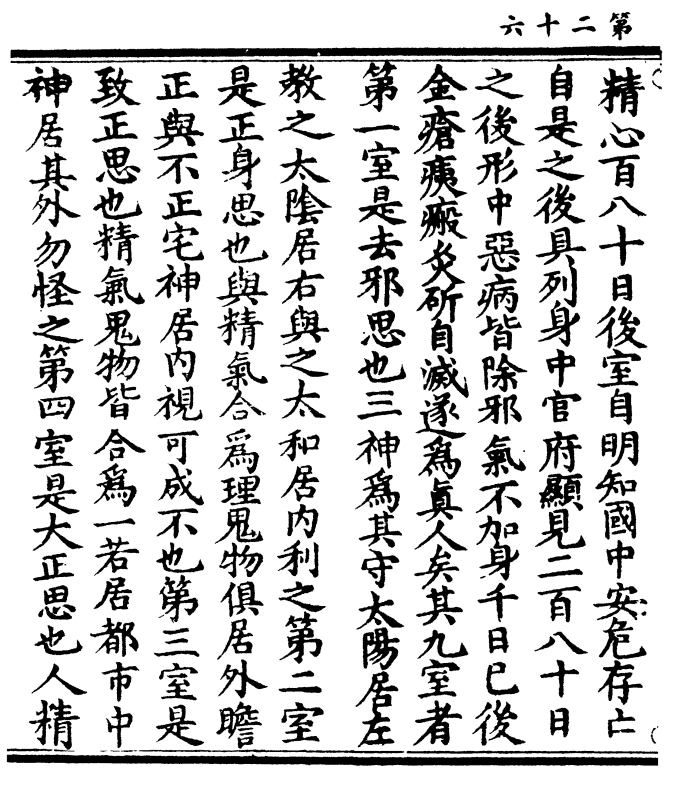 第二十六
精心百八十日後室自明知國中安危存亡
自是之後具列身中官府顯見二百八十日
之後形中惡病皆除邪氣不加身千日已後
金瘡痍瘢炙斫自滅遂爲真人矣其九室者
第一室是去邪思也三神爲其守太陽居左
教之太陰居右與之太和居内利之第二室
是正身思也與精氣合爲理鬼物俱居外瞻
正與不正宅神居内視可成不也第三室是
致正思也精氣鬼物皆合爲一若居都市中
神居其外勿怪之第四室是大正思也人精